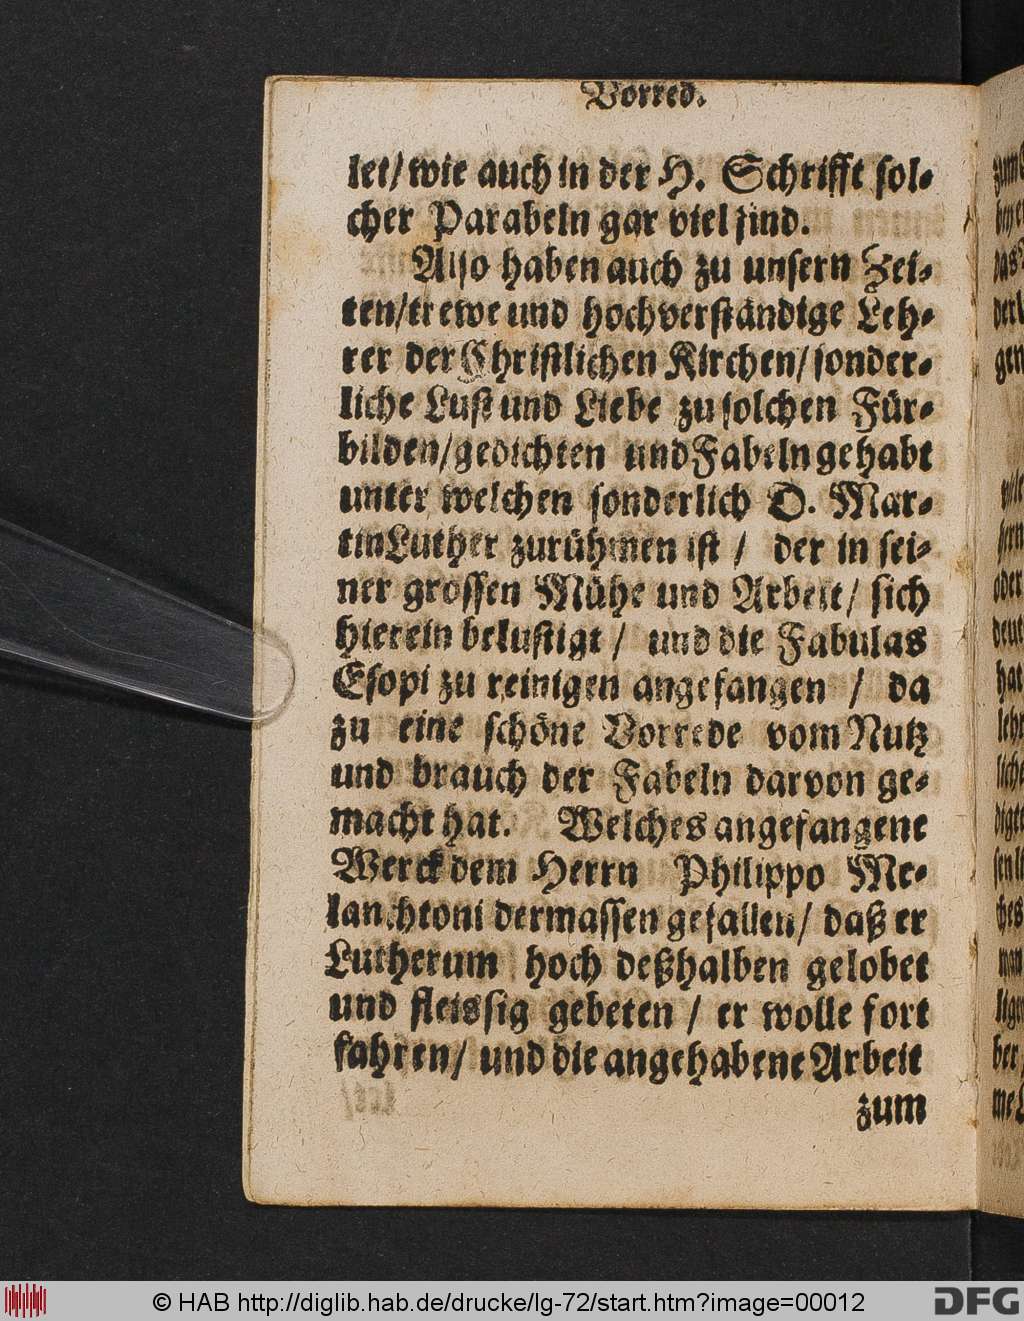 Vorred.
let/ wie auch in der H. Schrifft sol-
cher Parabeln gar viel sind.
Also haben auch zu unsern Zei-
ten/ trewe und hochverständige Leh-
rer der Christlichen Kirchen/ sonder-
liche Lust und Liebe zu solchen Für-
bilden/ gedichten und Fabeln gehabt
unter welchen sonderlich D. Mar-
tin Luther zurühmen ist / der in sei-
ner grossen Mühe und Arbeit/ sich
hierein belustigt / und die Fabulas
Esopi zu reinigen angefangen / da
zu eine schöne Vorrede vom Nutz
und brauch der Fabeln darvon ge-
macht hat. Welches angefangene
Werck dem Herrn Philippo Me-
lanchtoni dermassen gefallen/ daß er
Lutherum hoch deßhalben gelobet
und fleissig gebeten / er wolle fort
fahren/ und die angehabene Arbeit
zum
© HAB http://diglib.hab.de/drucke/lg-72/start.htm?image=00012
DFG